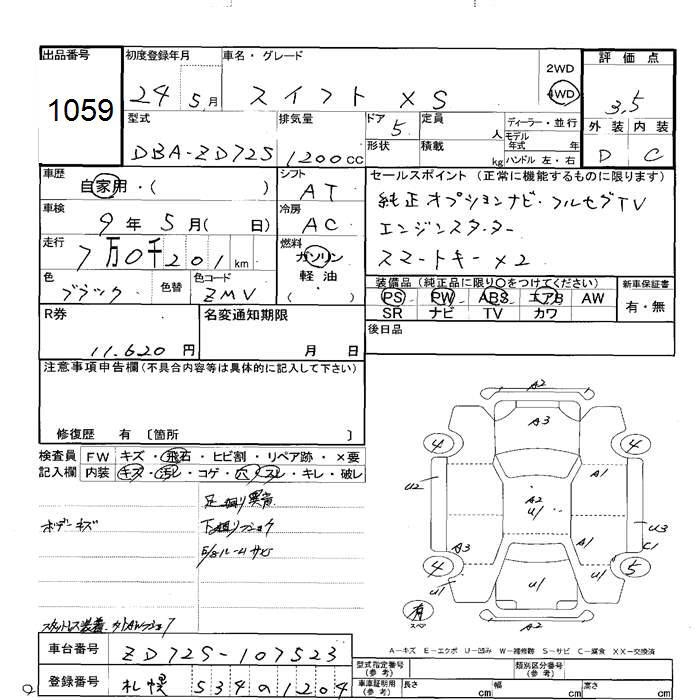 出品番号
1059
初度登録年月
24 5月
車名・グレード
スイフト XS
2WD
4WD
評価点
3.5
外装 内装
D C
型式
DBA-ZD72S
排気量
1200cc
ドア
5
形状
定員
人
積載
kg
ディーラー・並行
モデル
年式 年
ハンドル 左・右
車歴
自家用・( )
車検
9年5月( 日)
走行
7万0千201km
色
ブラック
色替
色コード
ZMV
シフト
AT
冷房
AC
燃料
ガソリン
軽油
( )
セールスポイント (正常に機能するものに限ります)
純正オプションナビ・フルセグTV
エンジンスターター
スマートキー×2
装備品(純正品に限り〇をつけてください)
PS PW ABS エアB AW
SR ナビ TV カワ
新車保証書
有・無
後日品
R券
11.620円
名変通知期限
月 日
注意事項申告欄(不具合内容等は具体的に記入して下さい)
修復歴 有 〔箇所 〕
検査員
記入欄
FW キズ・飛石・ヒビ割・リペア跡・×要
内装 キズ・汚レ・コゲ・穴・スレ・キレ・破レ
ボデーキズ
足廻り異音
下廻り
サビ
A2
A3
4
4
A1
U2
A2
U1
U3
C1
A3
A1
4
5
U1
U1
U1
有
スペア
A2
A-キズ E-エクボ U-凹み W-補修跡 S-サビ C-腐食 XX-交換済
車台番号
ZD72S-107523
登録番号
札幌 534 の 1204
型式指定番号
(参考)
類別区分番号
(参考)
車庫証明用
(参考)
長さ cm
幅 cm
高さ cm